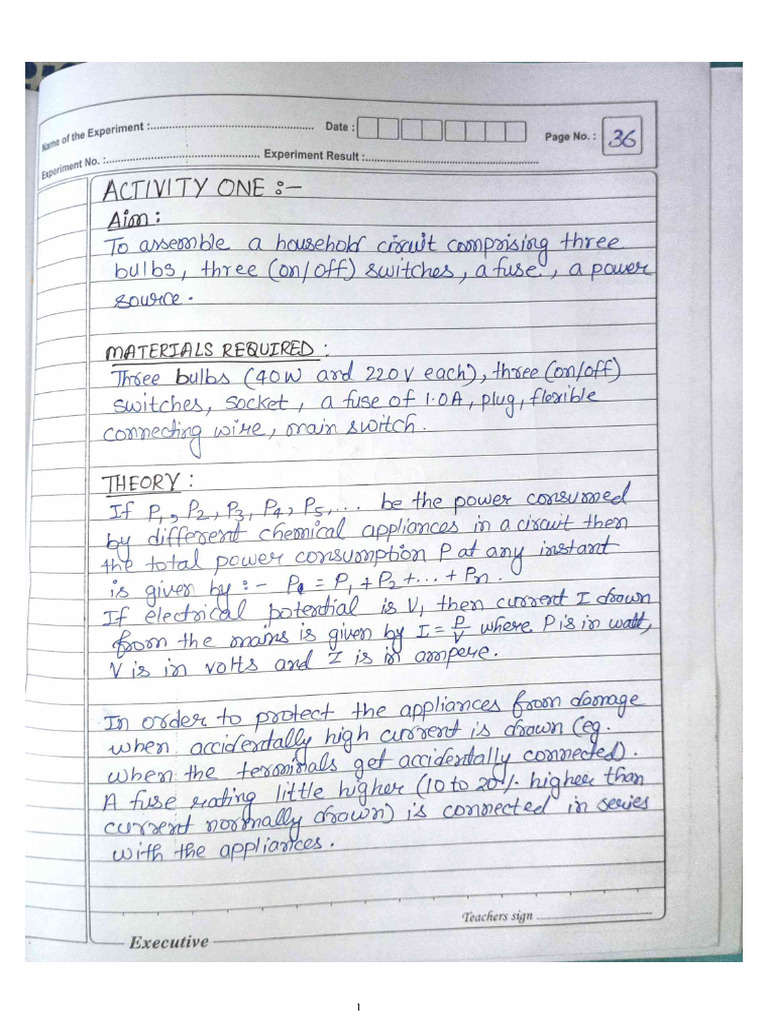 Name of the Experiment :
Date :
Page No. : 36
Experiment No. :
Experiment Result :
ACTIVITY ONE :-
Aim :
To assemble a household circuit comprising three
bulbs, three (on/off) switches, a fuse, a power
source.
MATERIALS REQUIRED :
Three bulbs (40W and 220V each), three (on/off)
switches, socket, a fuse of 1.0A, plug, flexible
connecting wire, main switch.
THEORY :
If P1, P2, P3, P4, P5, ... be the power consumed
by different chemical appliances in a circuit then
the total power consumption P at any instant
is given by :- P = P1 + P2 + ... + Pn.
If electrical potential is V, then current I drawn
from the mains is given by I = P/V where P is in watt,
V is in volts and I is in ampere.
In order to protect the appliances from damage
when accidentally high current is drawn (eg.
when the terminals get accidentally connected).
A fuse rating little higher (10 to 20% higher than
current normally drawn) is connected in series
with the appliances.
Teachers sign
Executive
1